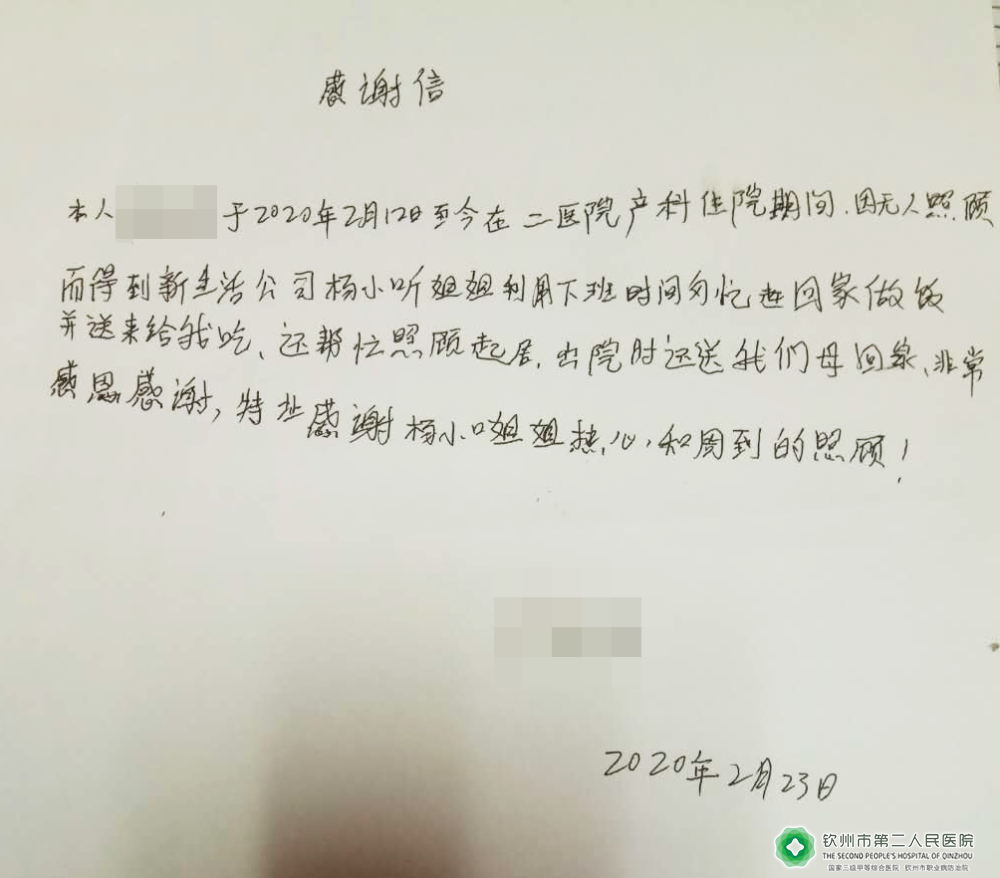 感谢信
本人 于2020年2月12日至今在二医院产科住院期间、因无人照顾
而得到新生活公司杨小听姐姐利用下班时间匆忙赶回家做饭
并送来给我吃、还帮忙照顾起居、出院时还送我们母回家、非常
感恩感谢,特此感谢杨小口姐姐热心和周到的照顾!
2020年2月23日
钦州市第二人民医院
THE SECOND PEOPLE'S HOSPITAL OF QINZHOU
国家三级甲等综合医院 钦州市职业病防治院